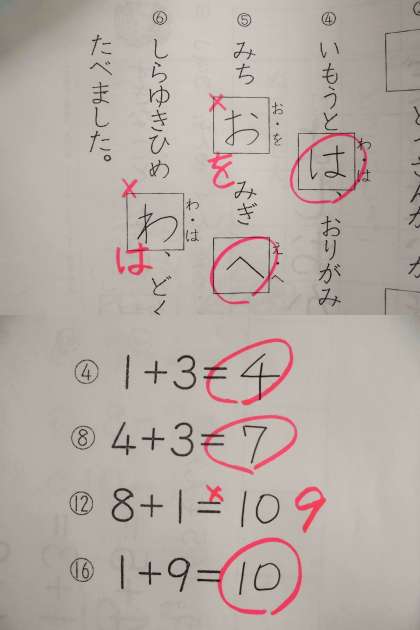 ④ いもうと は、おりがみ
わ・は
⑤ みち お みぎ へ
お・を
を
え・へ
⑥ しらゆきひめ わ、どく
わ・は
は
たべました。
④ 1+3=4
⑧ 4+3=7
⑫ 8+1=10 9
⑯ 1+9=10